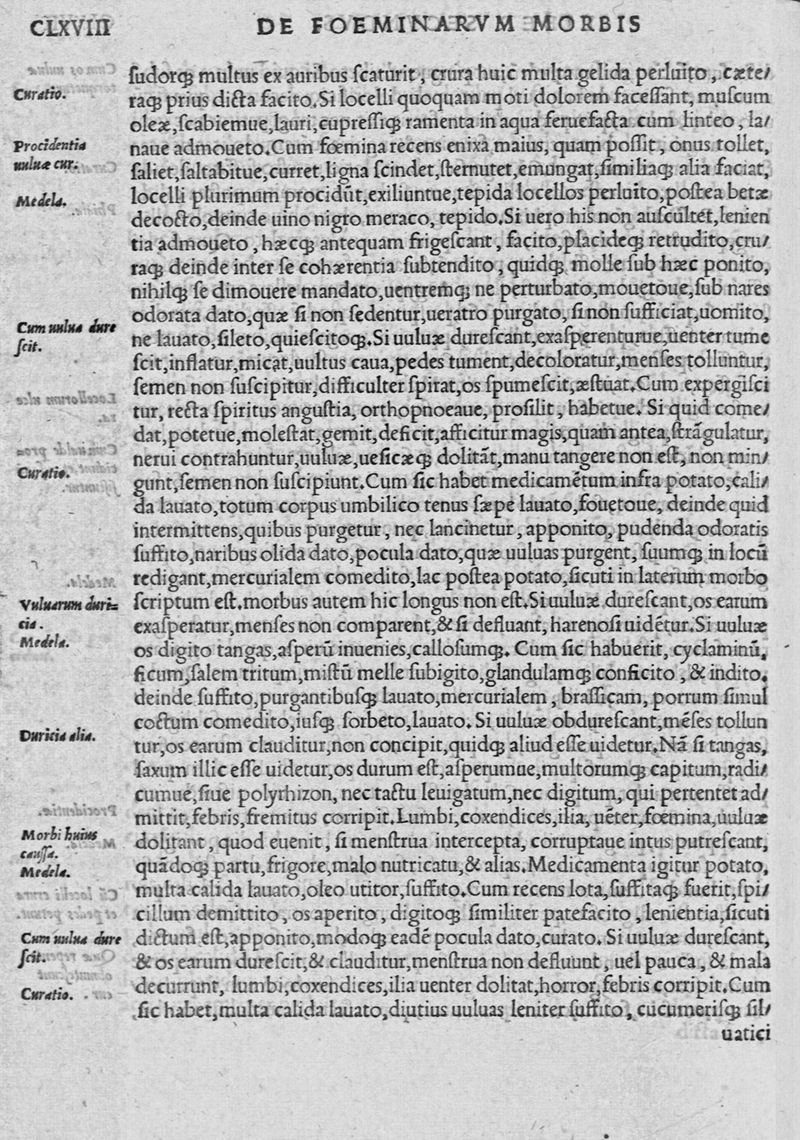 CLXVIII DE FOEMINARVM MORBIS
ſudorq; multus ex auribus ſcaturit, crura huic multa gelida perluito, cæte/
Curatio.
raq; prius dicta facito. Si locelli quoquam moti dolorem faceſſant, muſcum
oleæ, ſcabiemue, lauri, cupreſſiq; ramenta in aqua feruefacta cum linteo, la/
Procidentia
naue admoueto. Cum fœmina recens enixa maius, quam poſſit, onus tollet,
uuluæ cur.
ſaliet, ſaltabitue, curret, ligna ſcindet, ſternutet, emungat, ſimiliaq; alia faciat,
Medela.
locelli plurimum procidūt, exiliuntue, tepida locellos perluito, poſtea betæ
decocto, deinde uino nigro meraco, tepido. Si uero his non auſcultēt, lenien
tia admoueto, hæcq; antequam frigeſcant, facito, placideq; retrudito, cru/
raq; deinde inter ſe cohærentia ſubtendito, quidq; molle ſub hæc ponito,
nihilq; ſe dimouere mandato, uentremq; ne perturbato, mouetoue, ſub nares
odorata dato, quæ ſi non ſedentur, ueratro purgato, ſi non ſufficiat, uomito,
Cum uulua dure
ſcit.
ne lauato, ſileto, quieſcitoq;. Si uuluæ dureſcant, exaſperenturue, uenter tume
ſcit, inflatur, micat, uultus caua, pedes tument, decoloratur, menſes tolluntur,
ſemen non ſuſcipitur, difficulter ſpirat, os ſpumeſcit, æſtuat. Cum expergiſci
tur, recta ſpiritus anguſtia, orthopnoeaue, proſilit, habetue. Si quid come/
dat, potetue, moleſtat, gemit, deficit, afficitur magis, quam antea, ſtrāgulatur,
nerui contrahuntur, uuluæ, ueſicæq; dolitāt, manu tangere non eſt, non min/
Curatio.
gunt, ſemen non ſuſcipiunt. Cum ſic habet medicamētum infra potato, cali/
da lauato, totum corpus umbilico tenus ſæpe lauato, fouetoue, deinde quid
intermittens, quibus purgetur, nec lancinetur, apponito, pudenda odoratis
ſuffito, naribus olida dato, pocula dato, quæ uuluas purgent, ſuumq; in locū
redigant, mercurialem comedito, lac poſtea potato, ſicuti in laterum morbo
Vuluarum duri=
cia.
ſcriptum eſt. morbus autem hic longus non eſt. Si uuluæ dureſcant, os earum
exaſperatur, menſes non comparent, & ſi defluant, harenoſi uidētur. Si uuluæ
Medela.
os digito tangas, aſperū inuenies, calloſumq;. Cum ſic habuerit, cyclaminū,
ficum, ſalem tritum, miſtū melle ſubigito, glandulamq; conficito, & indito.
deinde ſuffito, purgantibuſq; lauato, mercurialem, braſſicam, porrum ſimul
coctum comedito, iuſq; ſorbeto, lauato. Si uuluæ obdureſcant, mēſes tollun
Duricia alia.
tur, os earum clauditur, non concipit, quidq; aliud eſſe uidetur. Nā ſi tangas,
ſaxum illic eſſe uidetur, os durum eſt, aſperumue, multorumq; capitum, radi/
cumue, ſiue polyrhizon, nec tactu leuigatum, nec digitum, qui pertentet ad/
mittit, febris, fremitus corripit. Lumbi, coxendices, ilia, uēter, fœmina, uuluæ
Morbi huius
cauſſa.
dolitant, quod euenit, ſi menſtrua intercepta, corruptaue intus putreſcant,
Medela.
quādoq; partu, frigore, malo nutricatu, & alias. Medicamenta igitur potato,
multa calida lauato, oleo utitor, ſuffito. Cum recens lota, ſuffitaq; fuerit, ſpi/
cillum demittito, os aperito, digitoq; ſimiliter patefacito, lenientia, ſicuti
Cum uulua dure
ſcit.
dictum eſt, apponito, modoq; eadē pocula dato, curato. Si uuluæ dureſcant,
& os earum dureſcit, & clauditur, menſtrua non defluunt, uel pauca, & mala
Curatio.
decurrunt, lumbi, coxendices, ilia uenter dolitat, horror, febris corripit. Cum
ſic habet, multa calida lauato, diutius uuluas leniter ſuffito, cucumeriſq; ſil/
uatici